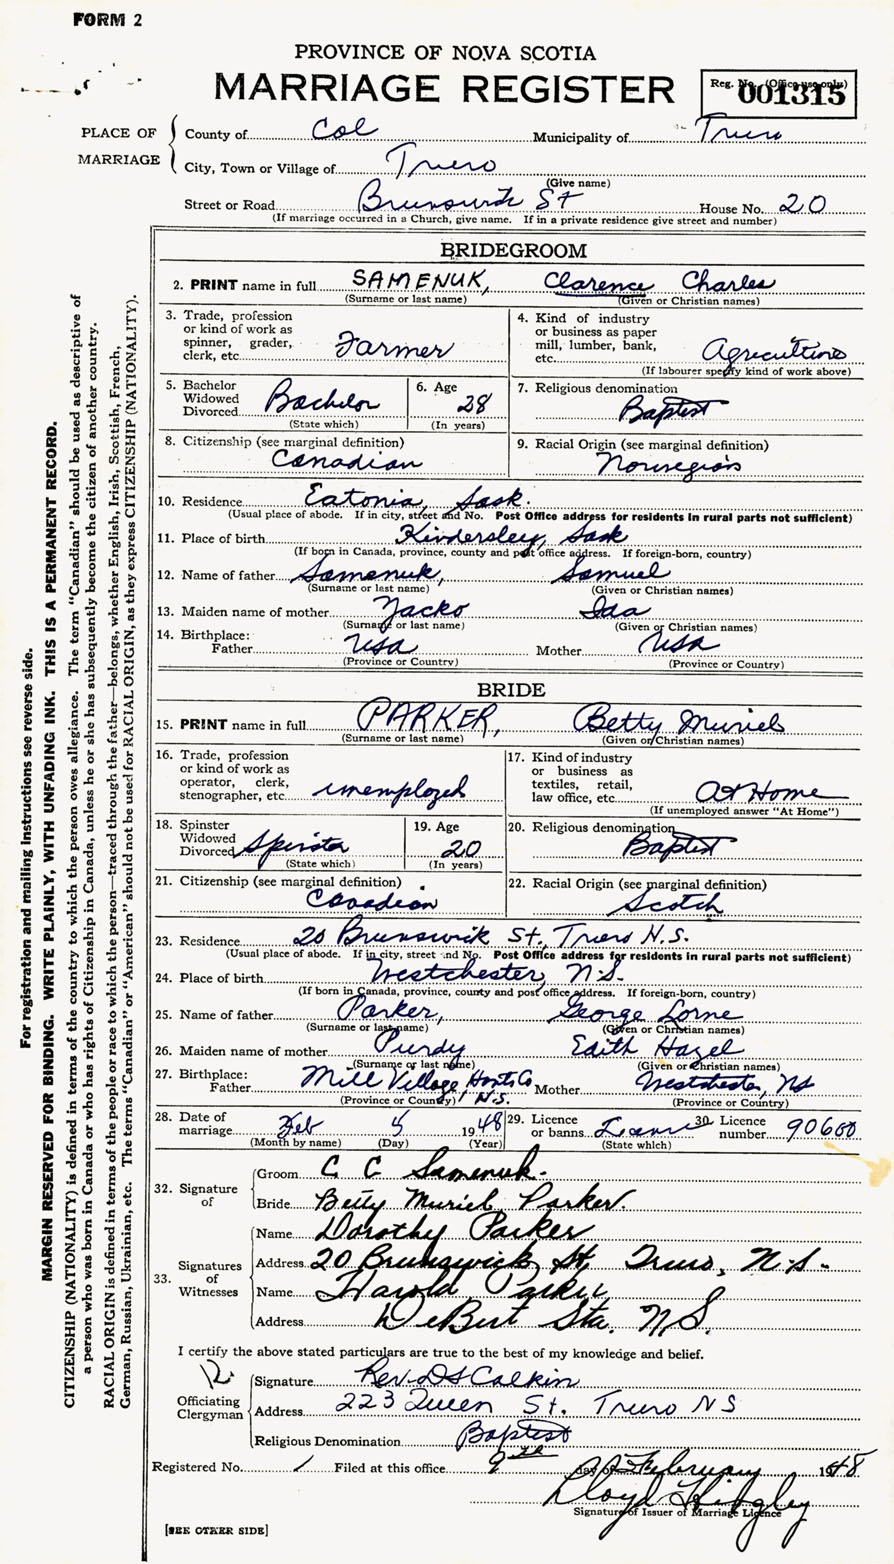 FORM 2
PROVINCE OF NOVA SCOTIA
MARRIAGE REGISTER
Reg. No. (Office use only)
001315
PLACE OF MARRIAGE
County of Col Municipality of Truro
City, Town or Village of Truro
(Give name)
Street or Road Brunswick St House No. 20
(If marriage occurred in a Church, give name. If in a private residence give street and number)
BRIDEGROOM
2. PRINT name in full SAMENUK, Clarence Charles
(Surname or last name) (Given or Christian names)
3. Trade, profession or kind of work as spinner, grader, clerk, etc. Farmer
4. Kind of industry or business as paper mill, lumber, bank, etc. Agriculture
(If labourer specify kind of work above)
5. Bachelor Widowed Divorced Bachelor
(State which)
6. Age 28
(In years)
7. Religious denomination
Baptist
8. Citizenship (see marginal definition)
Canadian
9. Racial Origin (see marginal definition)
Norwegian
10. Residence Eatonia, Sask.
(Usual place of abode. If in city, street and No. Post Office address for residents in rural parts not sufficient)
11. Place of birth Kindersley, Sask
(If born in Canada, province, county and post office address. If foreign-born, country)
12. Name of father Samenuk, Samuel
(Surname or last name) (Given or Christian names)
13. Maiden name of mother Yacko Ida
(Surname or last name) (Given or Christian names)
14. Birthplace:
Father USA Mother USA
(Province or Country) (Province or Country)
BRIDE
15. PRINT name in full PARKER, Betty Muriel
(Surname or last name) (Given or Christian names)
16. Trade, profession or kind of work as operator, clerk, stenographer, etc. unemployed
17. Kind of industry or business as textiles, retail, law office, etc. At Home
(If unemployed answer "At Home")
18. Spinster Widowed Divorced Spinster
(State which)
19. Age 20
(In years)
20. Religious denomination
Baptist
21. Citizenship (see marginal definition)
Canadian
22. Racial Origin (see marginal definition)
Scotch
23. Residence 20 Brunswick St., Truro N.S.
(Usual place of abode. If in city, street and No. Post Office address for residents in rural parts not sufficient)
24. Place of birth Westchester, N.S.
(If born in Canada, province, county and post office address. If foreign-born, country)
25. Name of father Parker, George Lorne
(Surname or last name) (Given or Christian names)
26. Maiden name of mother Purdy Edith Hazel
(Surname or last name) (Given or Christian names)
27. Birthplace:
Father Mill Village, Hants Co N.S. Mother Westchester, NS
(Province or Country) (Province or Country)
28. Date of marriage Feb 5 1948
(Month by name) (Day) (Year)
29. Licence or banns
(State which)
30. Licence number 90600
32. Signature of
Groom C C Samenuk.
Bride Betty Muriel Parker.
33. Signatures of Witnesses
Name Dorothy Parker
Address 20 Brunswick St, Truro, N.S.
Name Harold Parker
Address DeBert Sta. N.S.
I certify the above stated particulars are true to the best of my knowledge and belief.
Officiating Clergyman
Signature Rev. D S Calkin
Address 223 Queen St. Truro NS
Religious Denomination Baptist
Registered No. 1 Filed at this office 9th day of February 1948
Lloyd Hingley
Signature of Issuer of Marriage Licence
[SEE OTHER SIDE]
For registration and mailing instructions see reverse side.
MARGIN RESERVED FOR BINDING. WRITE PLAINLY, WITH UNFADING INK. THIS IS A PERMANENT RECORD.
CITIZENSHIP (NATIONALITY) is defined in terms of the country to which the person owes allegiance. The term "Canadian" should be used as descriptive of
a person who was born in Canada or who has rights of Citizenship in Canada, unless he or she has subsequently become the citizen of another country.
RACIAL ORIGIN is defined in terms of the people or race to which the person—traced through the father—belongs, whether English, Irish, Scottish, French,
German, Russian, Ukrainian, etc. The terms "Canadian" or "American" should not be used for RACIAL ORIGIN, as they express CITIZENSHIP (NATIONALITY).